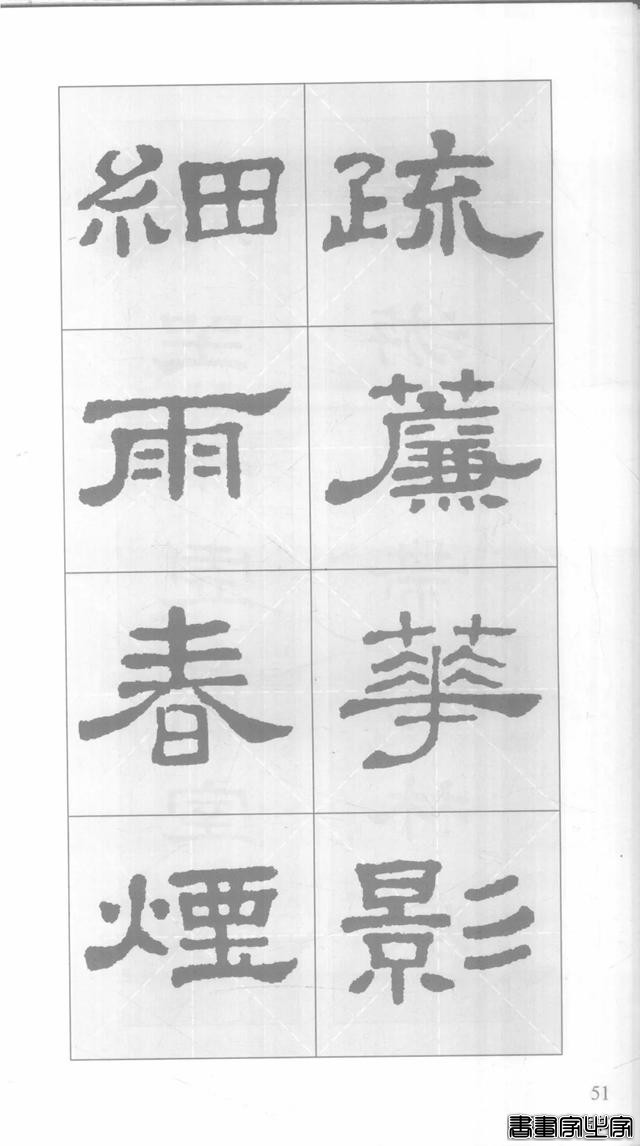 疏簾華影
細雨春煙
51
書畫字典字